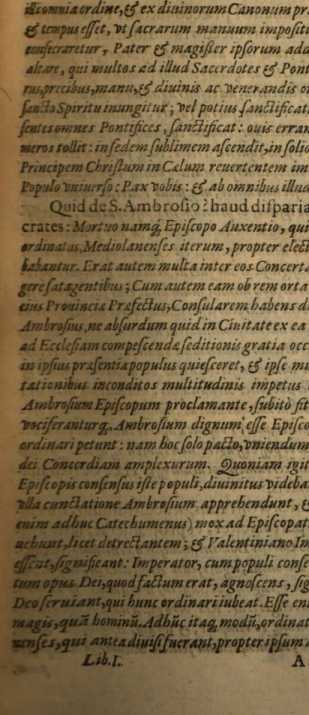 illic omnia ordine, & ex diuinorum Canonum pr
& tempus esset, vt sacrarum manuum impositi
consecraretur, Pater & magister ipsorum ada
altare, qui multos ad illud Sacerdotes & Pont
rus, precibus, manu, & diuinis ac venerandis or
sancto Spiritu inungitur; vel potius sanctificat
sentes omnes Pontifices, sanctificat: ouis erran
meros tollit: in sedem sublimem ascendit, in solio
Principem Christum in Cælum reuertentem im
Populo vniuerso: Pax vobis: & ab omnibus illud
Quid de S. Ambrosio? haud disparia
crates: Mortuo namq́, Episcopo Auxentio, qui
ordinatus, Mediolanenses iterum, propter elect
babantur. Erat autem multa inter eos Concerta
gere satagentibus; Cum autem eam ob rem orta
eius Prouinciæ Præfectus, Consularem habens di
Ambrosius, ne absurdum quid in Ciuitate ex ea
ad Ecclesiam compescendæ seditionis gratia occ
in ipsius præsentia populus quiesceret, & ipse mu
tationibus inconditos multitudinis impetus
Ambrosium Episcopum proclamante, subitò fit
vociferanturq́, Ambrosium dignum esse Episco
ordinari petunt: nam hoc solo pacto, vniendum
dei Concordiam amplexurum. Quoniam igit
Episcopis consensus iste populi, diuinitus videba
vlla cunctatione Ambrosium apprehendunt, &
enim adhuc Catechumenus) mox ad Episcopat
uehunt, licet detrectantem; & Valentiniano Im
essent, significant: Imperator, cum populi conse
tum opus Dei, quod factum erat, agnoscens, sig
Deo seruiant, qui hunc ordinari iubeat. Esse en
magis, quã hominũ. Adhũc itaq́, modũ, ordinat
nenses, qui antea diuisi fuerant, propter ipsum
Lib. I. A